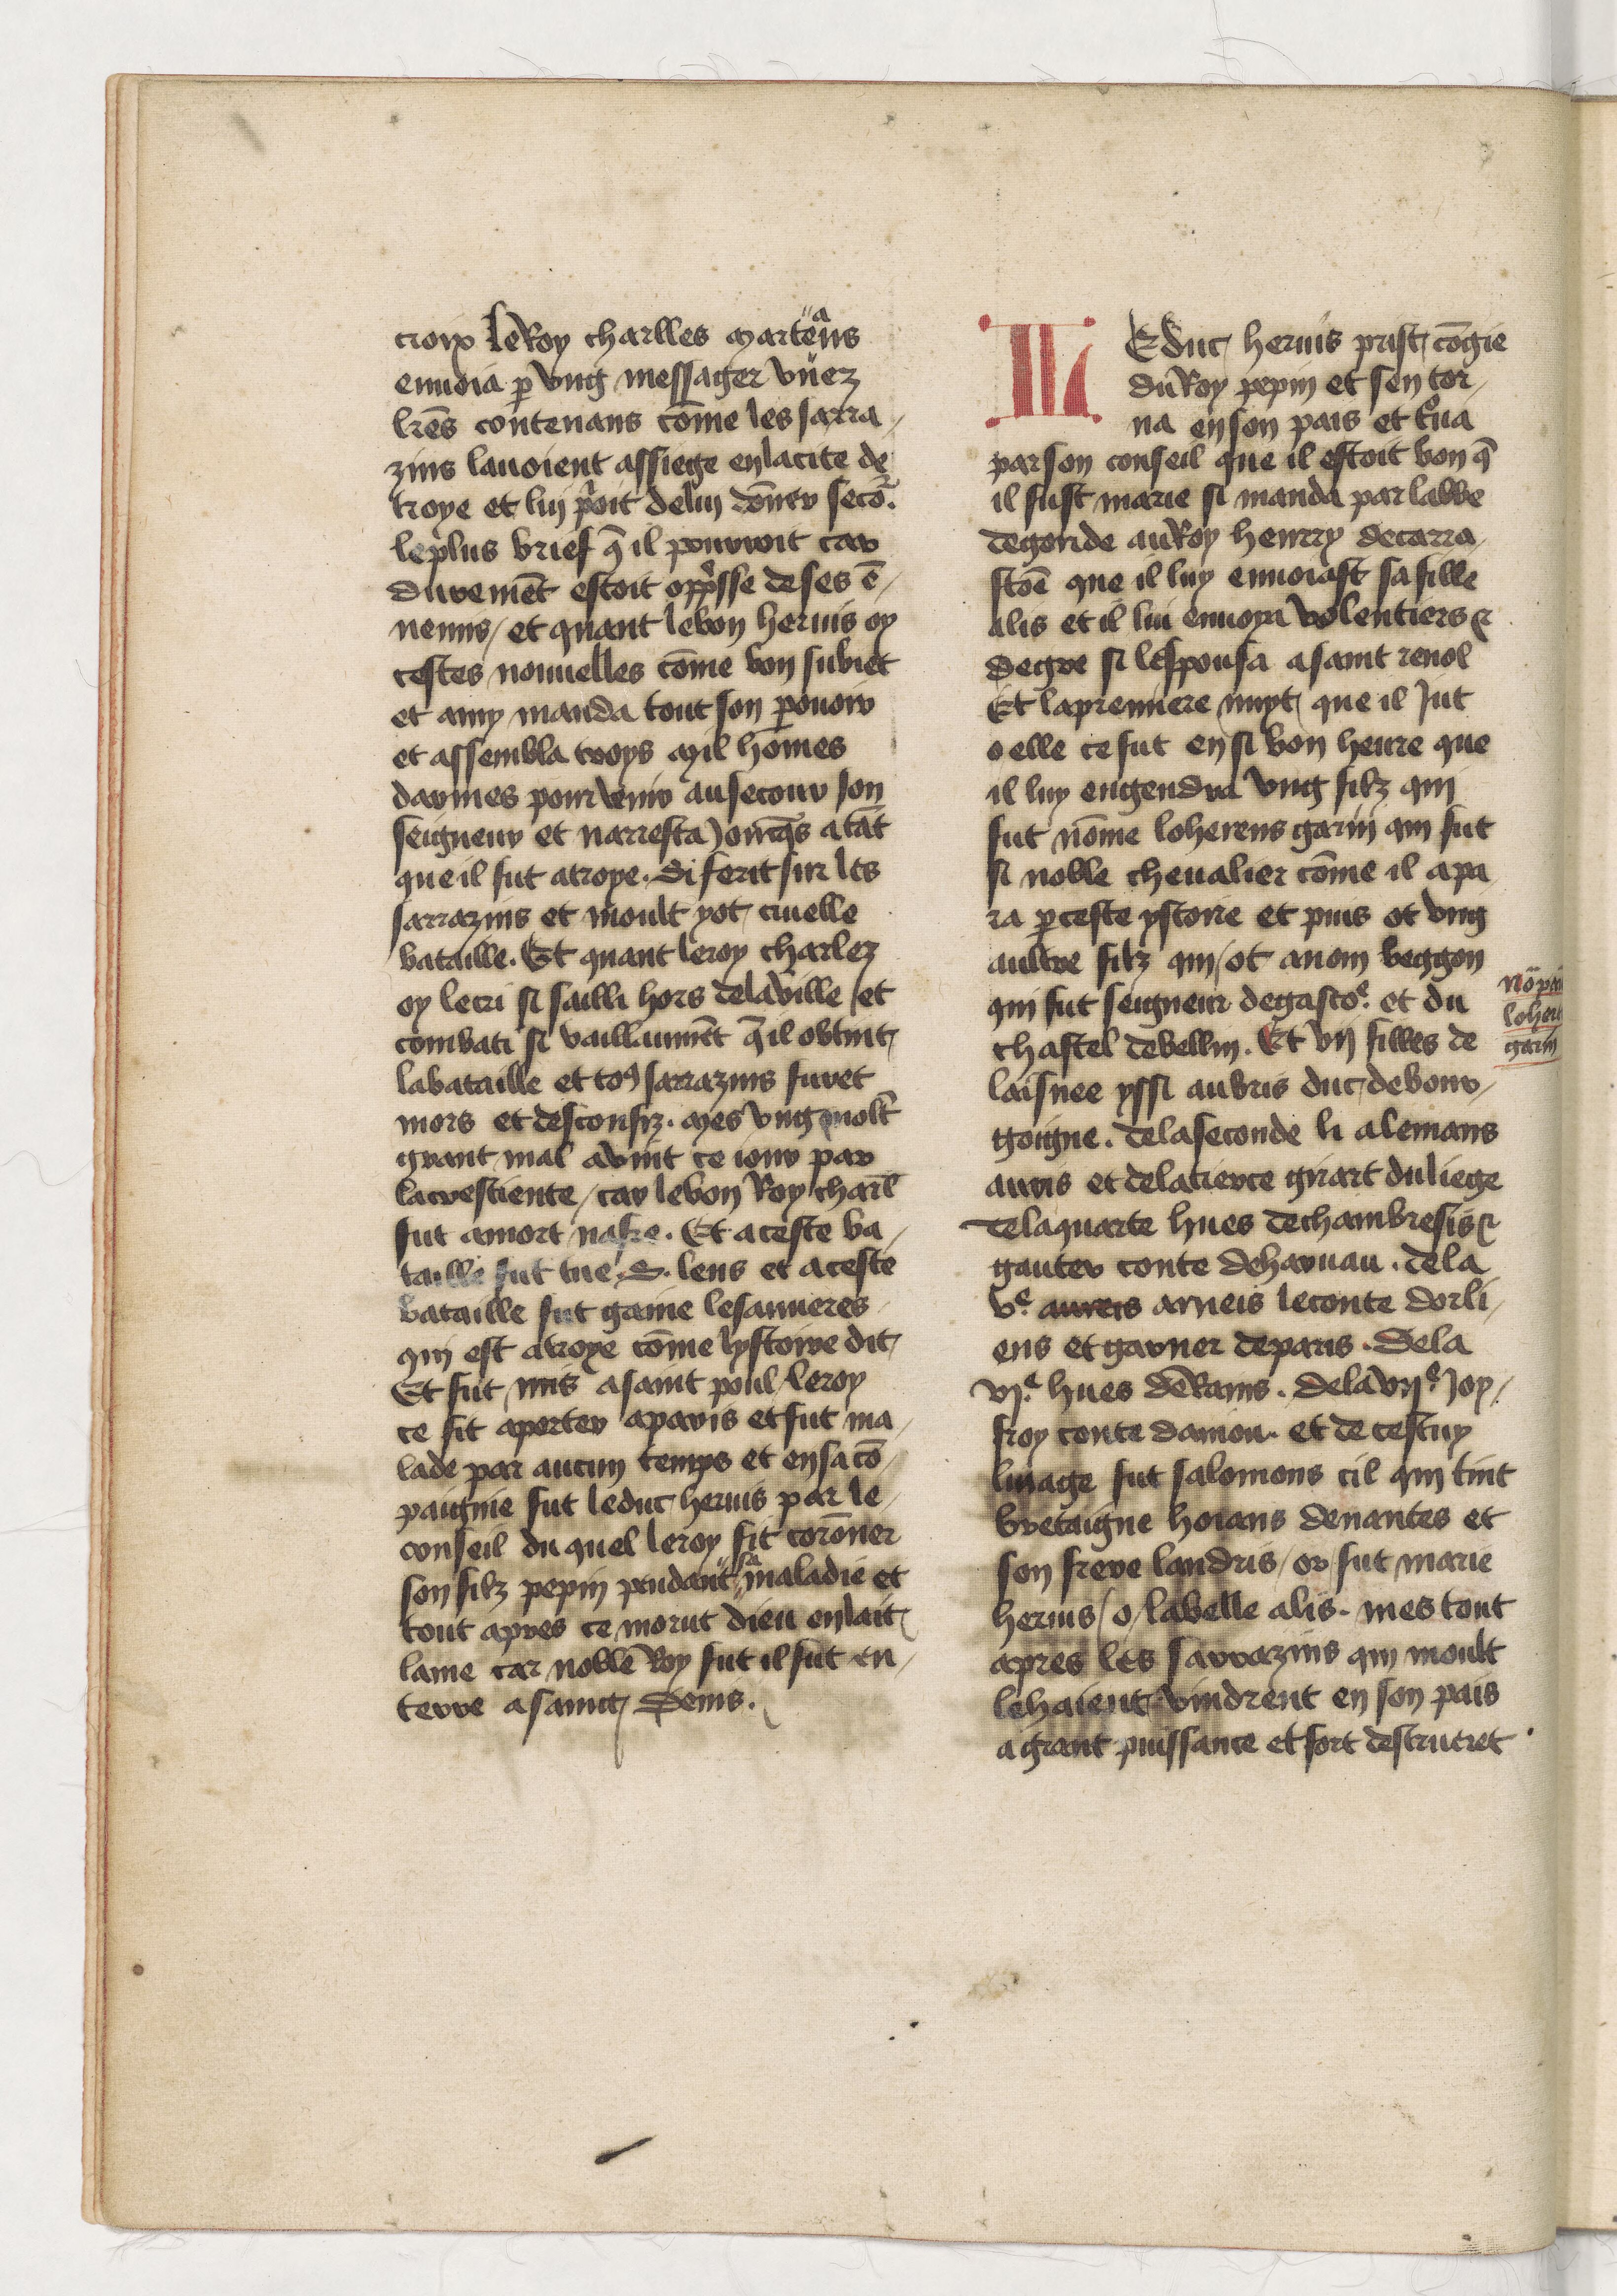 croix Le Roy charlles marteaus
enuoia p vng messager vnez
lrēs contenans cōme les sarra-
zins lauoient assiege en la cite de
troye et lui p̃oit de lui dōner seco.
le plus brief q̄ il pourroit car
durement estoit opp̃sse de ses ē-
nemis / et quant le bon heruis oy
cestes nouuelles cōme bon subiet
et amy manda tout son pouoir
et assembla troys mil hōmes
darmes pour venir au secour son
seigneur et narresta onc̄qs a tāt
que il fut a troye. Si ferit sur les
sarrazins et moult y ot cruelle
bataille. Et quant le roy charlez
oy le cri si sailli hors de la ville et
combati si vaillaumēt q̄ il obtint
la bataille et to9 sarrazins furet
mors et desconfiz. mes vng molt
grant mal avint ce iour par
la crestiente / car le bon Roy charl̄
fut a mort nafre. Et a ceste ba-
taille fut tue .S. lens et a ceste
bataille fut gaine lesanneres
qui est a troye cōme lystoire dit
Et fut mis a saint poul / le roy
ce fit aporter a paris et fut ma-
lade par aucun temps et en sa cō-
paignie fut le duc heruis par le
conseil du quel le roy fit corōner
son filz pepin pendant sa maladie et
tout apres ce morut dieu en lait
lame car noble Roy fut il fut en-
terre a saint Denis.
LE duc heruis prist cōgie
du Roy pepin et sen tor-
na en son pais et t̊ua
par son conseil que il estoit bon q̄
il fust marie si manda par labbe
de goride au Roy henrry de carra-
stoē que il luy enuoiast sa fille
alis et il lui enuoya volentiers et
de gre si lespousa a saint renol
Et la premiere nuyt que il Jut
o elle ce fut en si bon heure que
il luy engendra vng filz qui
fut nōme loherens garin qui fut
si noble cheualier cōme il apa
ra p ceste ystoire et puis ot vng
aultre filz qui ot a nom beggon
qui fut seigneur de gascoe. et du
chastel de bellin. Et vij filles de
laisnee yssi aubris duc de bour-
goigne. de la seconde li alemans
auris et de la tierce girart du liege
de la quarte hues de chambresis et
gauter conte de harnau. de la
ve. aureis arneis le conte dorli-
ens et garner de paris. De la
vje. hues de Rains. de la vije. Jof-
froy conte daniou. et de cestuy
linage fut salomons cil qui tint
bretaigne hoians de nantes et
son frere landris / or fut marie
heruis / o / la belle alis. mes tout
apres les sarrazins qui moult
le haient vindrent en son pais
a grant puissance et fort destrucret
garin